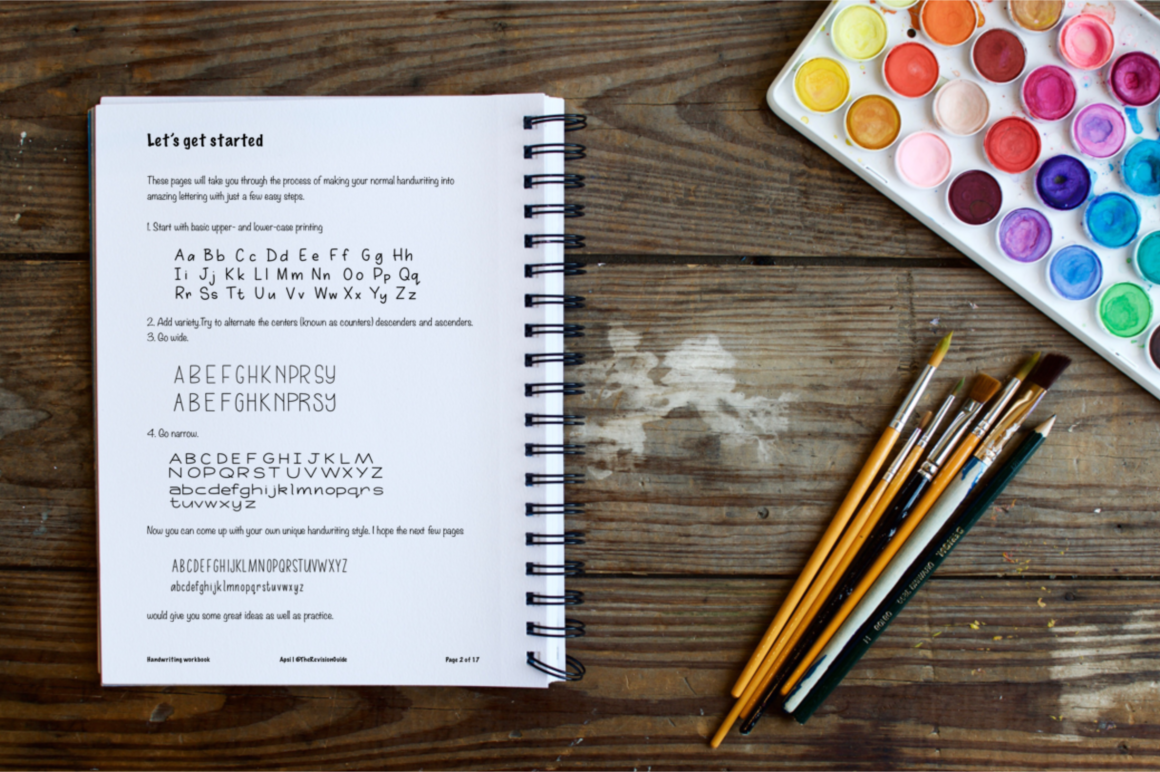 Let's get started
These pages will take you through the process of making your normal handwriting into
amazing lettering with just a few easy steps.
1. Start with basic upper- and lower-case printing
Aa Bb Cc Dd Ee Ff Gg Hh
Ii Jj Kk Ll Mm Nn Oo Pp Qq
Rr Ss Tt Uu Vv Ww Xx Yy Zz
2. Add variety.Try to alternate the centers (known as counters) descenders and ascenders.
3. Go wide.
ABEFGHKNPRSY
ABEFGHKNPRSY
4. Go narrow.
ABCDEFGHIJKLM
NOPQRSTUVWXYZ
abcdefghijklmnopqrs
tuvwxyz
Now you can come up with your own unique handwriting style. I hope the next few pages
ABCDEFGHIJKLMNOPQRSTUVWXYZ
abcdefghijklmnopqrstuvwxyz
would give you some great ideas as well as practice.
Handwriting workbook Apsi l @TheRevisionGuide Page 2 of 17